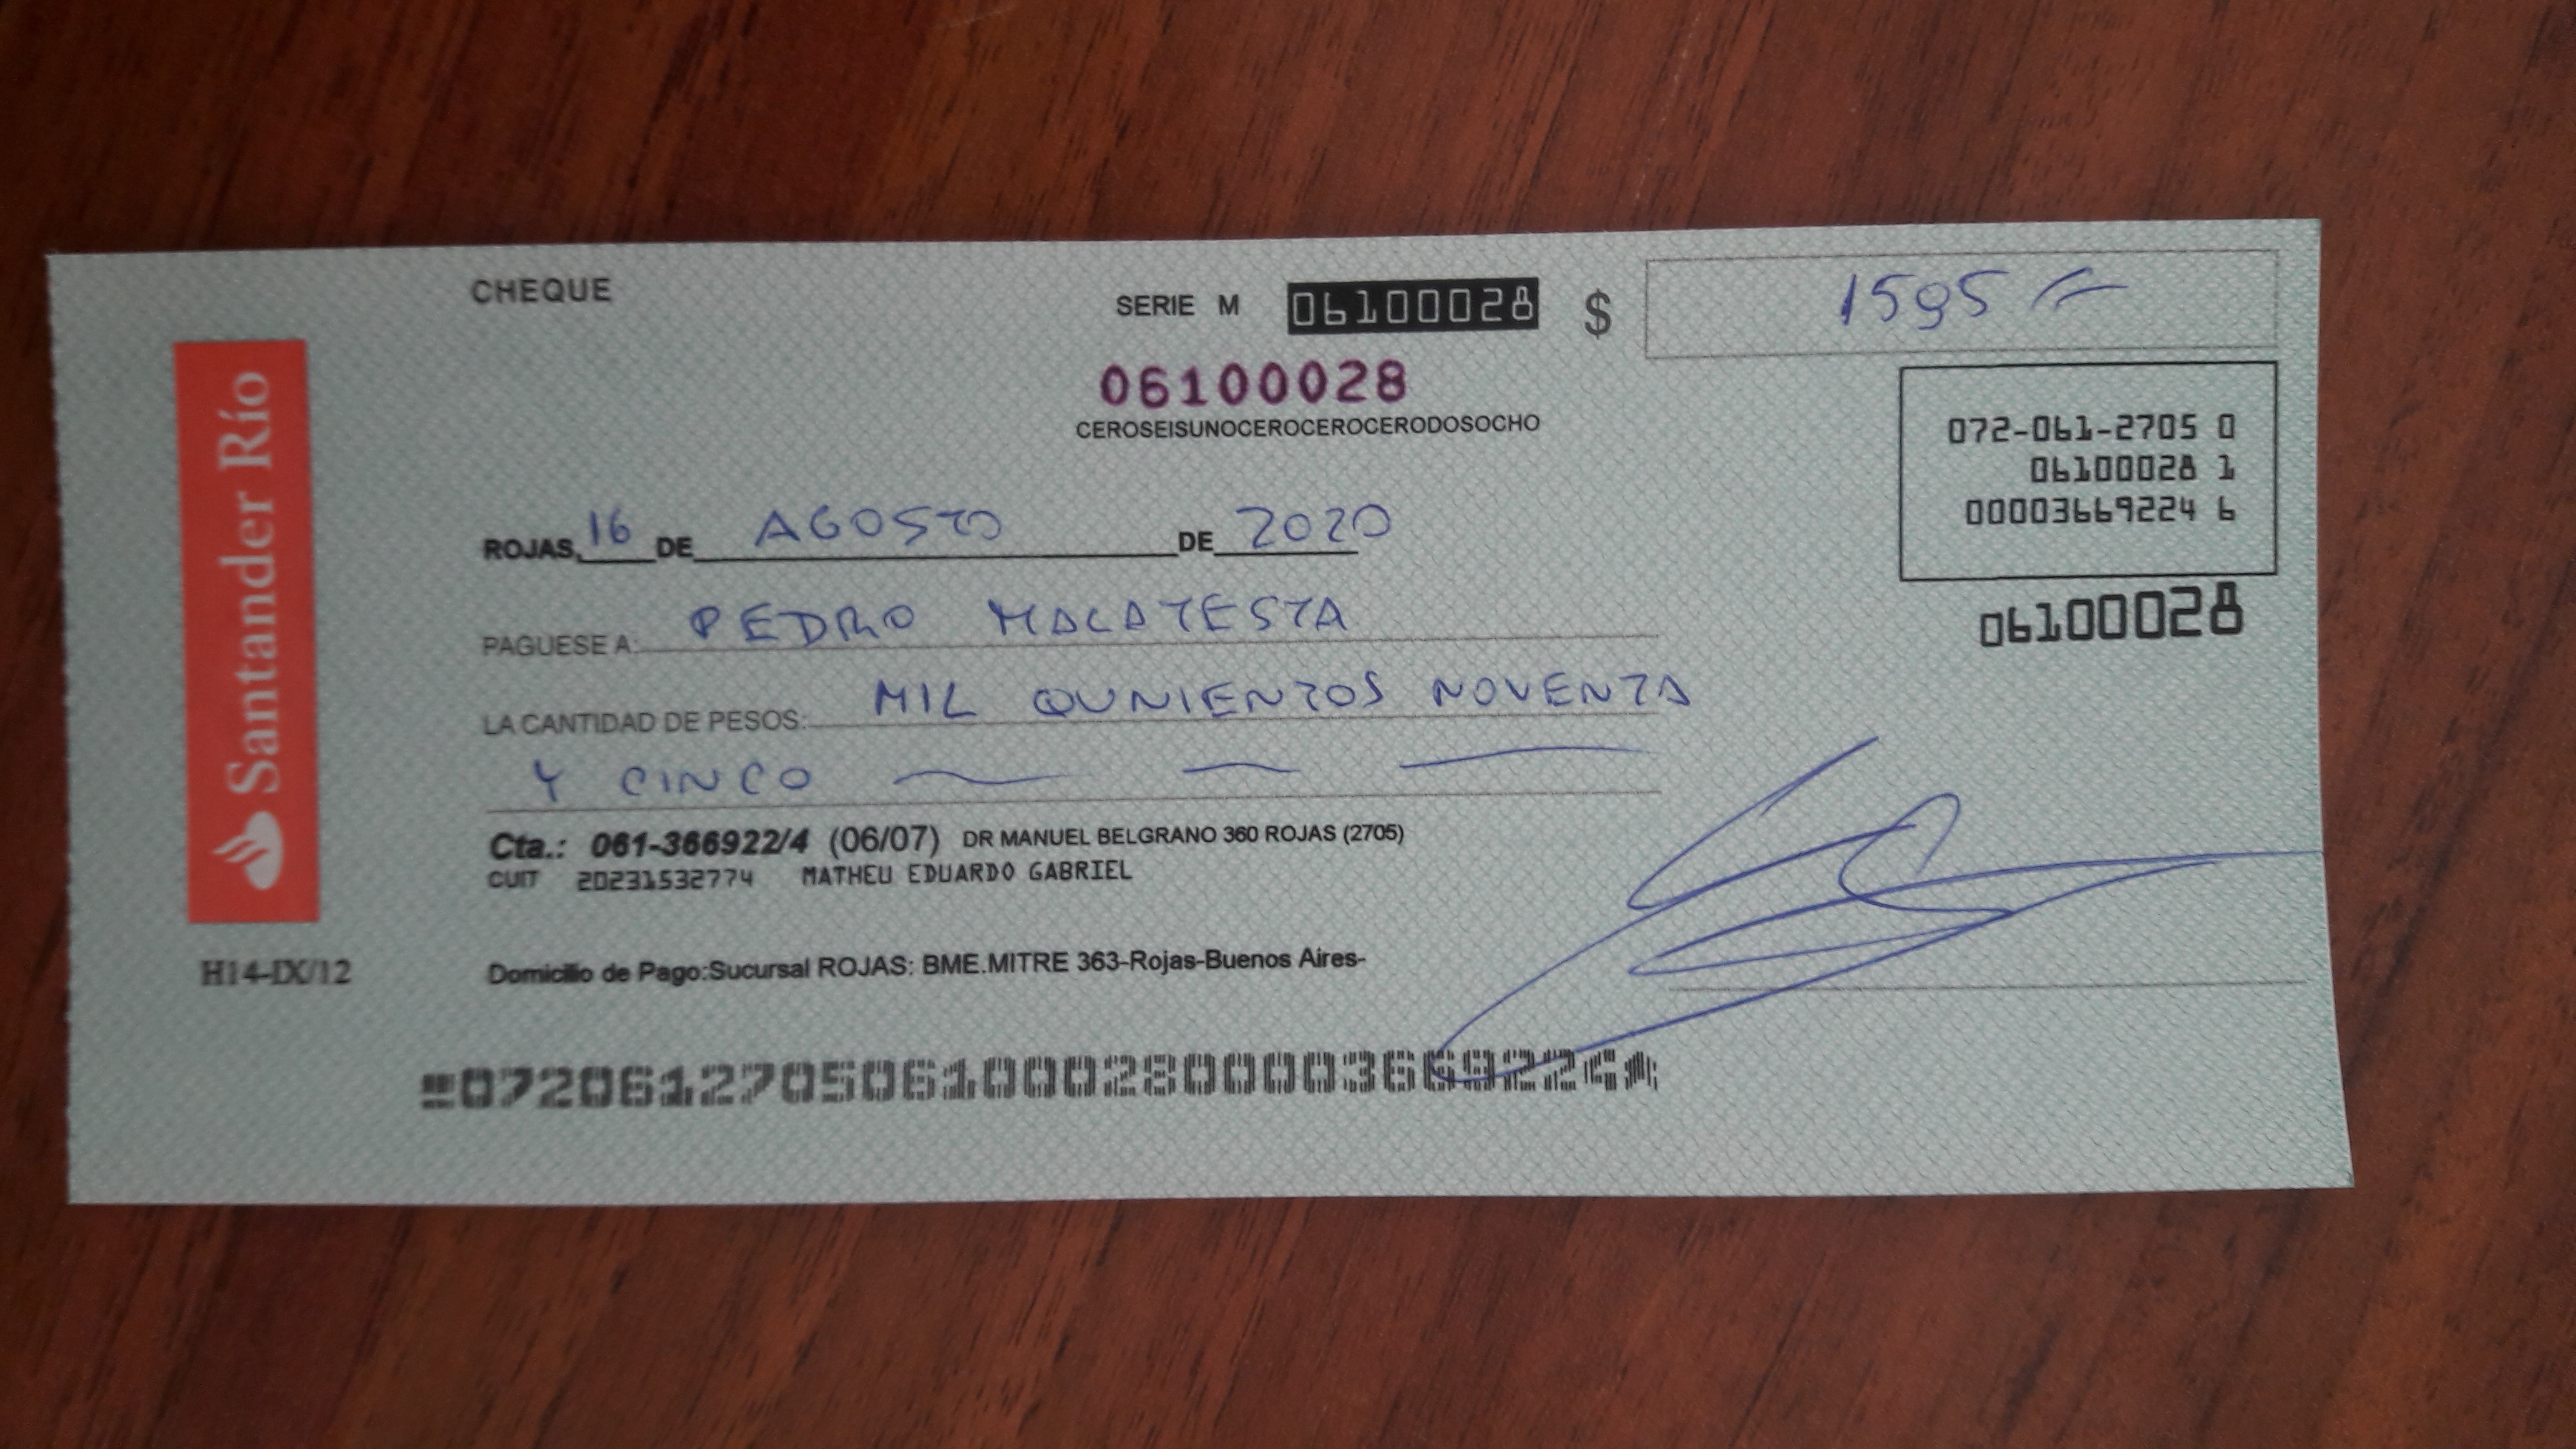 CHEQUE
SERIE M 06100028 $ 1595
06100028
CEROSEISUNOCEROCEROCERODOSOCHO
072-061-2705 0
06100028 1
00003669224 6
06100028
Santander Río
ROJAS, 16 DE AGOSTO DE 2020
PAGUESE A: PEDRO MALATESTA
LA CANTIDAD DE PESOS: MIL QUNIENTOS NOVENTA
Y CINCO
Cta.: 061-366922/4 (06/07) DR MANUEL BELGRANO 360 ROJAS (2705)
CUIT 20231532774 MATHEU EDUARDO GABRIEL
H14-IX/12
Domicilio de Pago:Sucursal ROJAS: BME.MITRE 363-Rojas-Buenos Aires-
07206127050610002800003669224